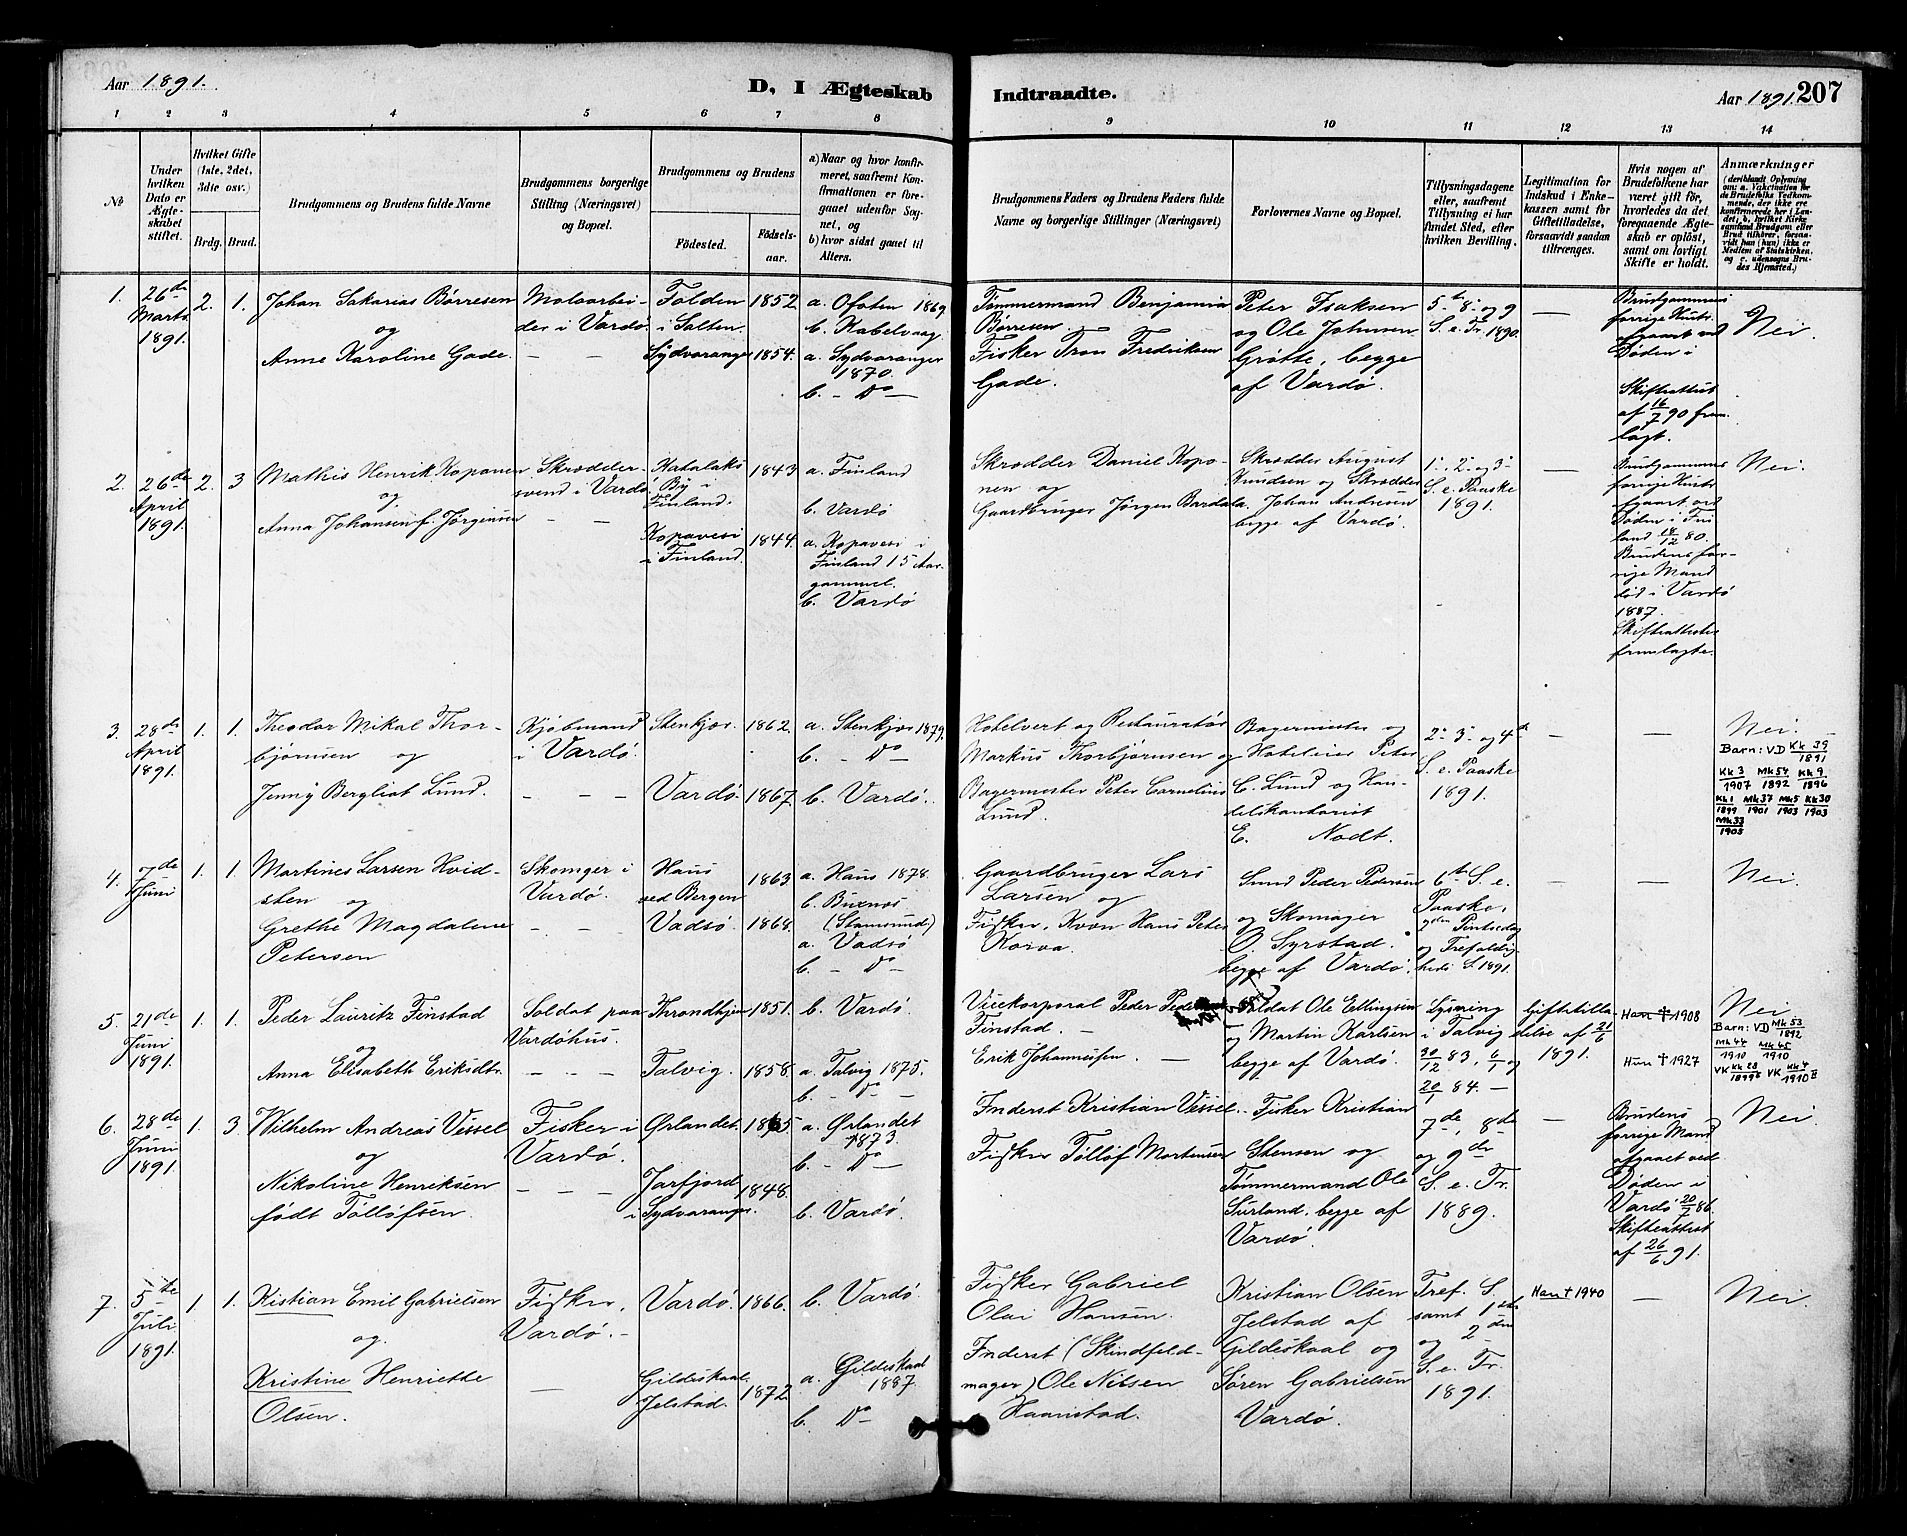 Aar 1891.
D, I Ægteskab
Indtraadte.
Aar 1891. 207
1 2 3 4 5 6 7 8 9 10 11 12 13 14
No
Under hvilken Dato er Ægteskabet stiftet.
Hvilket Gifte (1ste, 2det, 3die osv.)
Brdg. Brud.
Brudgommens og Brudens fulde Navne
Brudgommens borgerlige Stilling (Næringsvei) og Bopæl.
Brudgommens og Brudens
Fødested.
Fødselsaar.
a) Naar og hvor konfirmeret, saafremt Konfirmationen er foregaaet udenfor Sognet, og
b) hvor sidst gaaet til Alters.
Brudgommens Faders og Brudens Faders fulde Navne og borgerlige Stillinger (Næringsvei)
Forlovernes Navne og Bopæl.
Tillysningsdagene eller, saafremt Tillysning ei har fundet Sted, efter hvilken Bevilling.
Legitimation for Indskud i Enkekassen samt for Giftetilladelse, forsaavidt saadan tiltrænges.
Hvis nogen af Brudefolkene har været gift før, hvorledes da det foregaaende Ægteskab er opløst, samt om lovligt Skifte er holdt.
Anmærkninger
1. 26de Marts 1891. 2. 1.
Johan Sakarias Børresen
og
Anne Karoline Gade.
Malaarbeider i Vardø.
Folden i Salten. 1852
Sydvaranger 1854.
a. Ofoten 1869
b. Kabelvaag
a. Sydvaranger 1870.
b. - Do -
Tømmermand Benjamin Børresen.
Fisker Tron Fredriksen Gade.
Peter Isaksen
og Ole Johnsen
Grøtte, begge
af Vardø.
5te 8- og 9
S. e. Tr. 1890.
—
Brudgommens forrige Hustr. afgaaet ved Døden i
Skifteattest af 16/7 90 fremlagt.
Nei.
2. 26de April 1891. 2. 3
Mathis Henrik Koponen
og
Anna Johansen f. Jørgensen
Skræddersvend i Vardø
By i Finland. 1843
Kopavesi i Finland. 1844.
a. Finland
b. Vardø
a. Kopavesi i
Finland 15 Aar
gammel.
b. Vardø
Skrædder Daniel Koponen og
Gaardbruger Jørgen Bardala.
Skrædder August
Knudsen og Skrædder
Johan Andresen
begge af Vardø.
1-, 2- og 3-
S. e. Paaske
1891.
—
Brudgommens forrige Hustr. afgaaet ved Døden i Finland 18/12 80.
Brudens forrige Mand død i Vardø 1887.
Skifteattester fremlagte.
Nei.
3. 28de April 1891. 1. 1.
Theodor Mikal Thorbjørnsen og
Jenny Bergliot Lund.
Kjøbmand i Vardø.
Stenkjær. 1862.
Vardø. 1867.
a. Stenkjær 1879.
b. - Do -
b. Vardø.
Hotelvert og Restauratør
Markus Thorbjørnsen og
Bagermester Peter Cornelius
Lund.
Bagermester og
Hoteleier Peter
C. Lund og Handelskontorist
E. Nodt.
2- 3- og 4de
S. e. Paaske
1891.
—
—
Nei.
Barn: VD Kk 39/1891
Kk 3/1907 Mk 54/1892 Kk 9/1896
Kk 1/1899 Mk 37/1901 Mk 5/1903 Kk 30/1903
Mk 33/1905
4. Juni 1. 1.
Martines Larsen Hvidsten og
Grethe Magdalene
Petersen
Skomger i Vardø.
Haus ved Bergen 1863
Vadsø. 1868.
a. Haus 1878.
b. Buxnes
(Stamsund)
a. Vadsø
b. - Do -
Gaardbruger Lars
Larsen og
Fisker, Kvæn Hans Peter
Koiva.
Smed Peder Pedersen
og Skomager
O. Syrstad.
begge af Vardø.
6te S. e.
Paaske,
2den Pintsedag
og Trefoldigheds S. 1891.
—
—
Nei.
5. 21de Juni 1891. 1. 1.
Peder Lauritz Finstad
og
Anna Elisabeth Eriksdtr.
Soldat paa Vardøhus.
Throndhjem 1851.
Talvig. 1858.
b. Vardø
a. Talvig 1875.
b. - Do -
Vicekorporal Peder
Finstad. -
Erik Johannesen. —
Soldat Ole Ellingsen
og Martin Karlsen
begge af Vardø.
Lysning
i Talvig
30/12 83, 6/1 og
20/1 84. —
Giftetilladelse af 21/6
1891.
Han † 1908
Hun † 1927
Nei
Barn: VD Mk 53/1892
Mk 44/1910 Mk 45/1910
VK Kk 28/1899 VK Kk 4/1910
6. 28de Juni 1891. 1. 3.
Wilhelm Andreas Vessel
og
Nikoline Henriksen
født Tølløfsen.
Fisker i Vardø.
Ørlandet. 1855
Jarfjord i Sydvaranger. 1848.
a. Ørlandet 1873.
b. - Do -
b. Vardø.
Inderst Kristian Vessel.
Fisker Tølløf Mortensen
Fisker Kristian
Stensen og
Tømmermand Ole
Surland. begge af
Vardø.
7de, 8de
og 9de
S. e. Tr.
1889.
—
Brudens forrige Mand afgaaet ved Døden i Vardø 20/7 86.
Skifteattest af 26/6 91.
Nei.
7. 5te Juli 1891. 1. 1.
Kistian Emil Gabrielsen
og.
Kristine Henriette
Olsen.
Fisker, Vardø. -
Vardø. 1866.
Gildeskaal. Jelstad. 1872.
b. Vardø.
a. Gildeskaal 1887.
b. Do -
Fisker Gabriel
Olai Hansen.
Inderst (Skindfeldmager) Ole Nilsen
Haanstad.
Kristian Olsen
Jelstad af
Gildeskaal og
Søren Gabrielsen
Vardø.
Tref. S.
samt 1ste
og 2den
S. e. Tr.
1891.
Han † 1940
—
Nei.